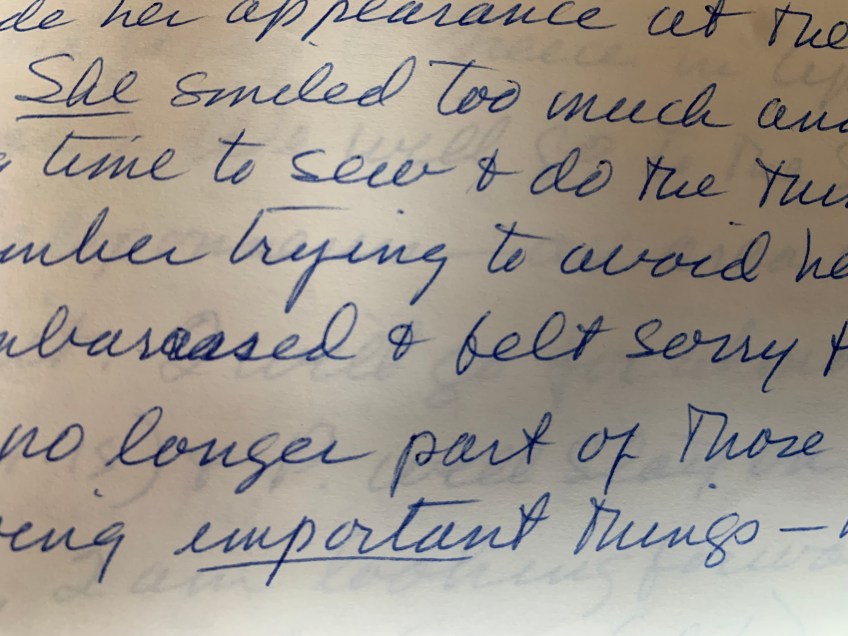 de her appearance at the
She smiled too much and
time to sew & do the
mber trying to avoid he
mbarrassed & felt sorry
no longer part of those
eing important things –